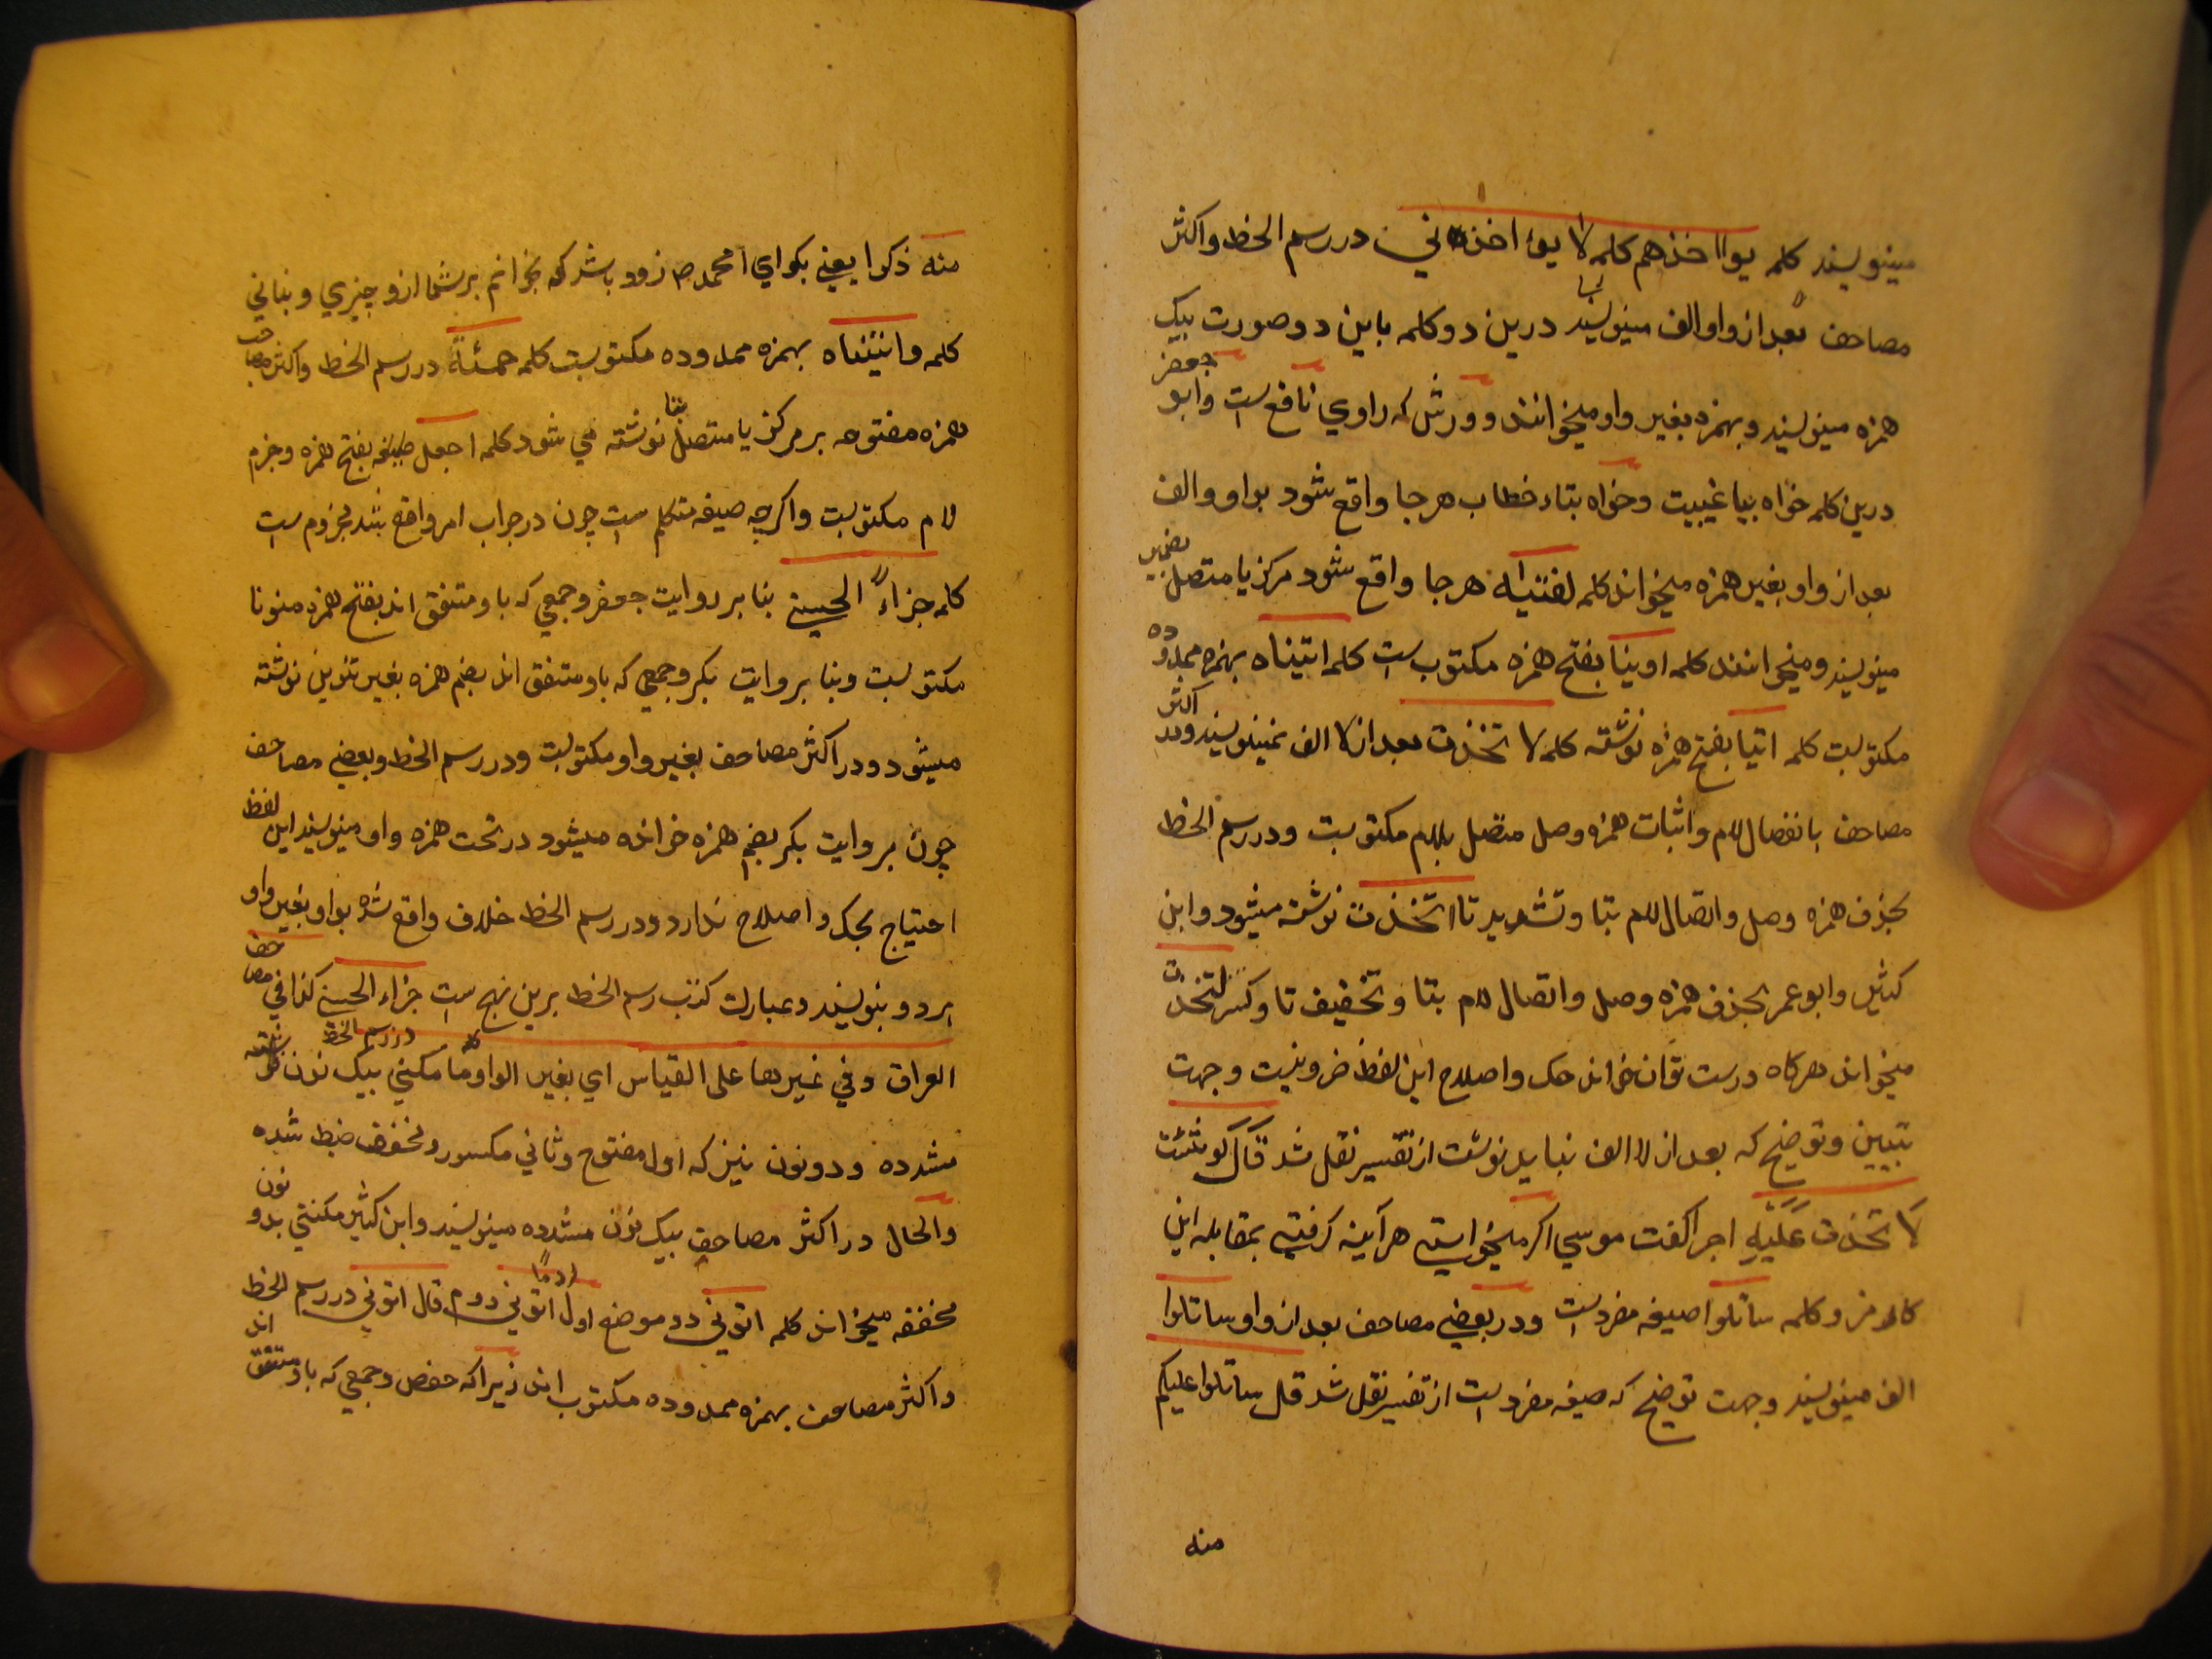 مینویسند کلمه یوااخذهم کلمه لا یؤاخذنی در رسم الخط واکثر
مصاحف بعد از واو الف مینویسند درین دو کلمه باین دو صورت بیک
همزه مینویسند وبهمزه بغیر واو میخوانند وورش که راوي نافع است وابو جعفر
درین کلمه خواه بیا غیبیت وخواه بتاء خطاب هر جا واقع شود بواو والف
بعد از واو بغیر همزه میخواند کلمه لفتیه هر جا واقع شود مرکز یا متصل بضمیر
مینویسند ومیخوانند کلمه اوینا بفتح همزه مکتوب است کلمه اتیناه بهمزه ممدوده
مکتوبست کلمه اتیا بفتح همزه نوشته کلمه لا تخذت بعد از لا الف نمینویسند ودر اکثر
مصاحف بانفصال لام واثبات همزه وصل متصل بلام مکتوبست ودر رسم الخط
بحذف همزه وصل واتصال لام بتا وتشدید تا اتخذت نوشته میشود وابن
کثیر وابو عمر بحذف همزه وصل واتصال لام بتا وتخفیف تا وکسر لتخذت
میخواند هرکاه درست توان خواند حک واصلاح این لفظ ضرو نیست وجهت
تبیین وتوضیح که بعد از لا الف نباید نوشت از تفسیر نقل شد قال لو شئت
لا تخذت علیه اجرا کفت موسي اکر میخواستي هر آینه کرفتي بمقابله این
کار مزد کلمه ساتلوا صیغه مفردست ودر بعضي مصاحف بعد از واو ساتلوا
الف مینویسند وجهت توضیح که صیغه مفردست از تفسیر نقل شد قل ساتلوا علیکم
منه
منه ذکرا یعني بکو اي محمد ص زود باشد که بخوانم بر شما ازو چیزي وبیاني
کلمه واتیناه بهمزه ممدوده مکتوبست کلمه حمئة در رسم الخط واکثر مصاحف
همزه مفتوحه بر مرکز یا متصل بتا نوشته مي شود کلمه اجعل صیغه بفتح همزه وجزم
لام مکتوبست واکرچه صیغه متکلم است چون در جواب امر واقع شد مجزوم است
کلمه جزاءً الحسني بنا بر روایت جعفر وجمعي که باو متفق اند بفتح همزه منونا
مکتوبست وبنا بر روایت بکر وجمعي که باو متفق اند بضم همزه بغیر تنوین نوشته
میشود ودر اکثر مصاحف بغیر واو مکتوبست ودر رسم الخط وبعضي مصاحف
چون بروایت بکر بضم همزه خوانده میشود در تحت همزه واو مینویسند این لفظ
احتیاج بحک واصلاح ندارد ودر رسم الخط خلاف واقع شده بواو وبغیر واو
هر دو بنویسند وعبارت کتب رسم الخط برین نهج است جزاء الحسني کذا في مصاحف
العراق وفي غیرها علي القیاس اي بغیر الواو کلمه ما مکنی در رسم الخط بیک نون نوشته
مشدده ودو نون نیز که اول مفتوح وثاني مکسور ومخفف ضبط شده
والحال در اکثر مصاحف بیک نون مشدده مینویسند وابن کثیر مکننی بدو نون
مخففه میخواند کلمه اتوني دو موضع اول ردما اتوني دوم قال اتوني در رسم الخط
واکثر مصاحف بهمزه ممدوده مکتوب اند زیرا که حفص وجمعي که باو متفق اند